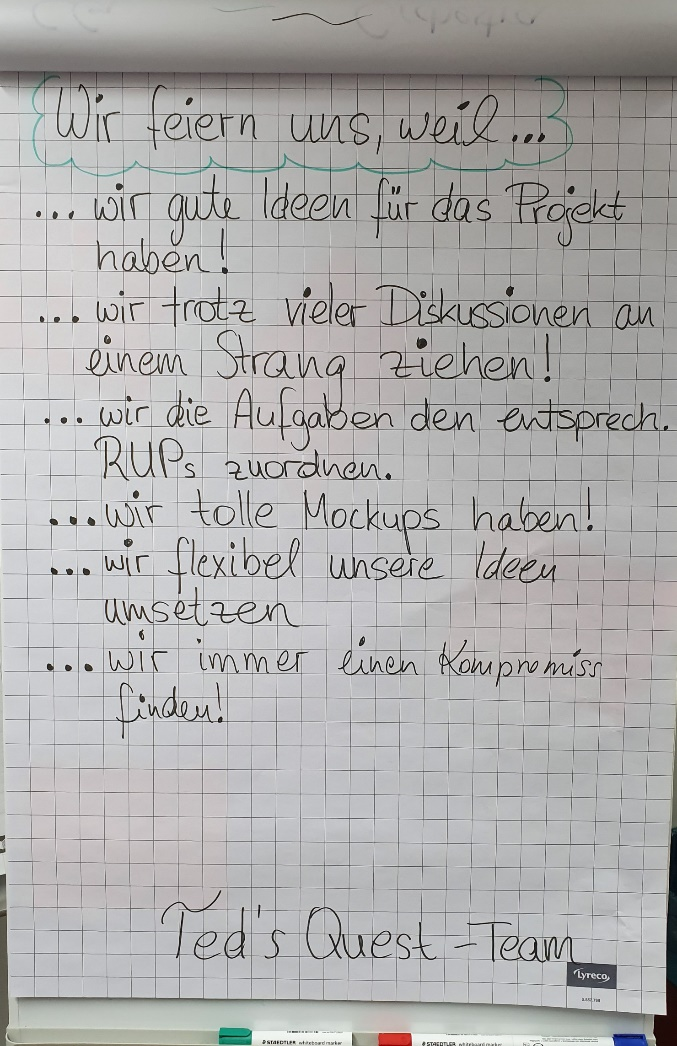 Wir feiern uns, weil...
... wir gute Ideen für das Projekt
haben!
... wir trotz vieler Diskussionen an
einem Strang ziehen!
... wir die Aufgaben den entsprech.
RUPs zuordnen.
... wir tolle Mockups haben!
... wir flexibel unsere Ideen
umsetzen
... wir immer einen Kompromiss
finden!
Ted's Quest -Team
Lyreco
STAEDTLER whiteboard marker
STAEDTLER whiteboard marker